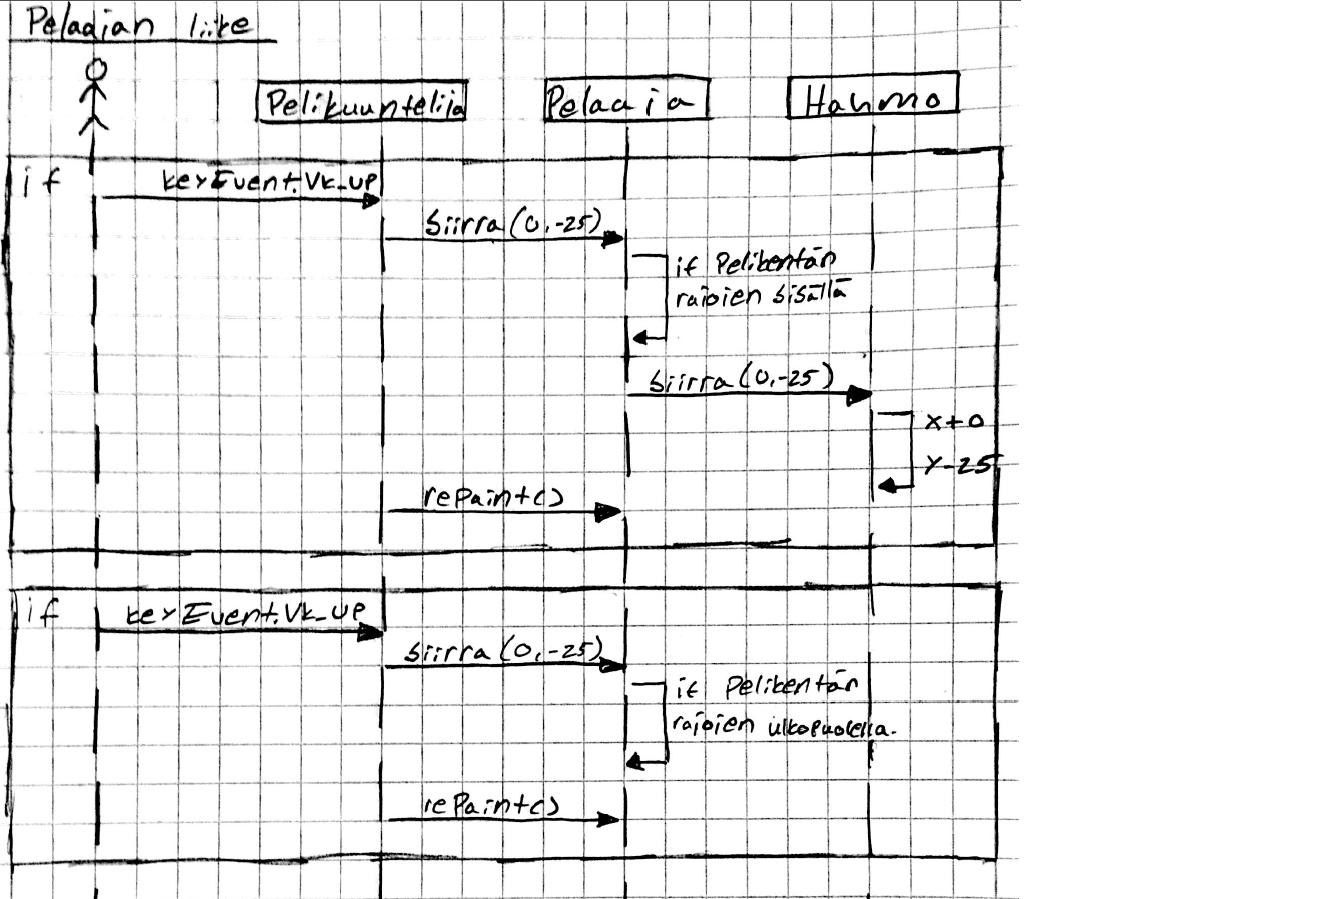 Pelaajan liike
Pelikuuntelija
Pelaaja
Hahmo
if
keyEvent.VK_UP
Siirra(0,-25)
if Pelikentän
rajojen sisällä
Siirra(0,-25)
x+0
Y-25
rePaint()
if
keyEvent.VK_UP
Siirra(0,-25)
if Pelikentän
rajojen ulkopuolella.
rePaint()